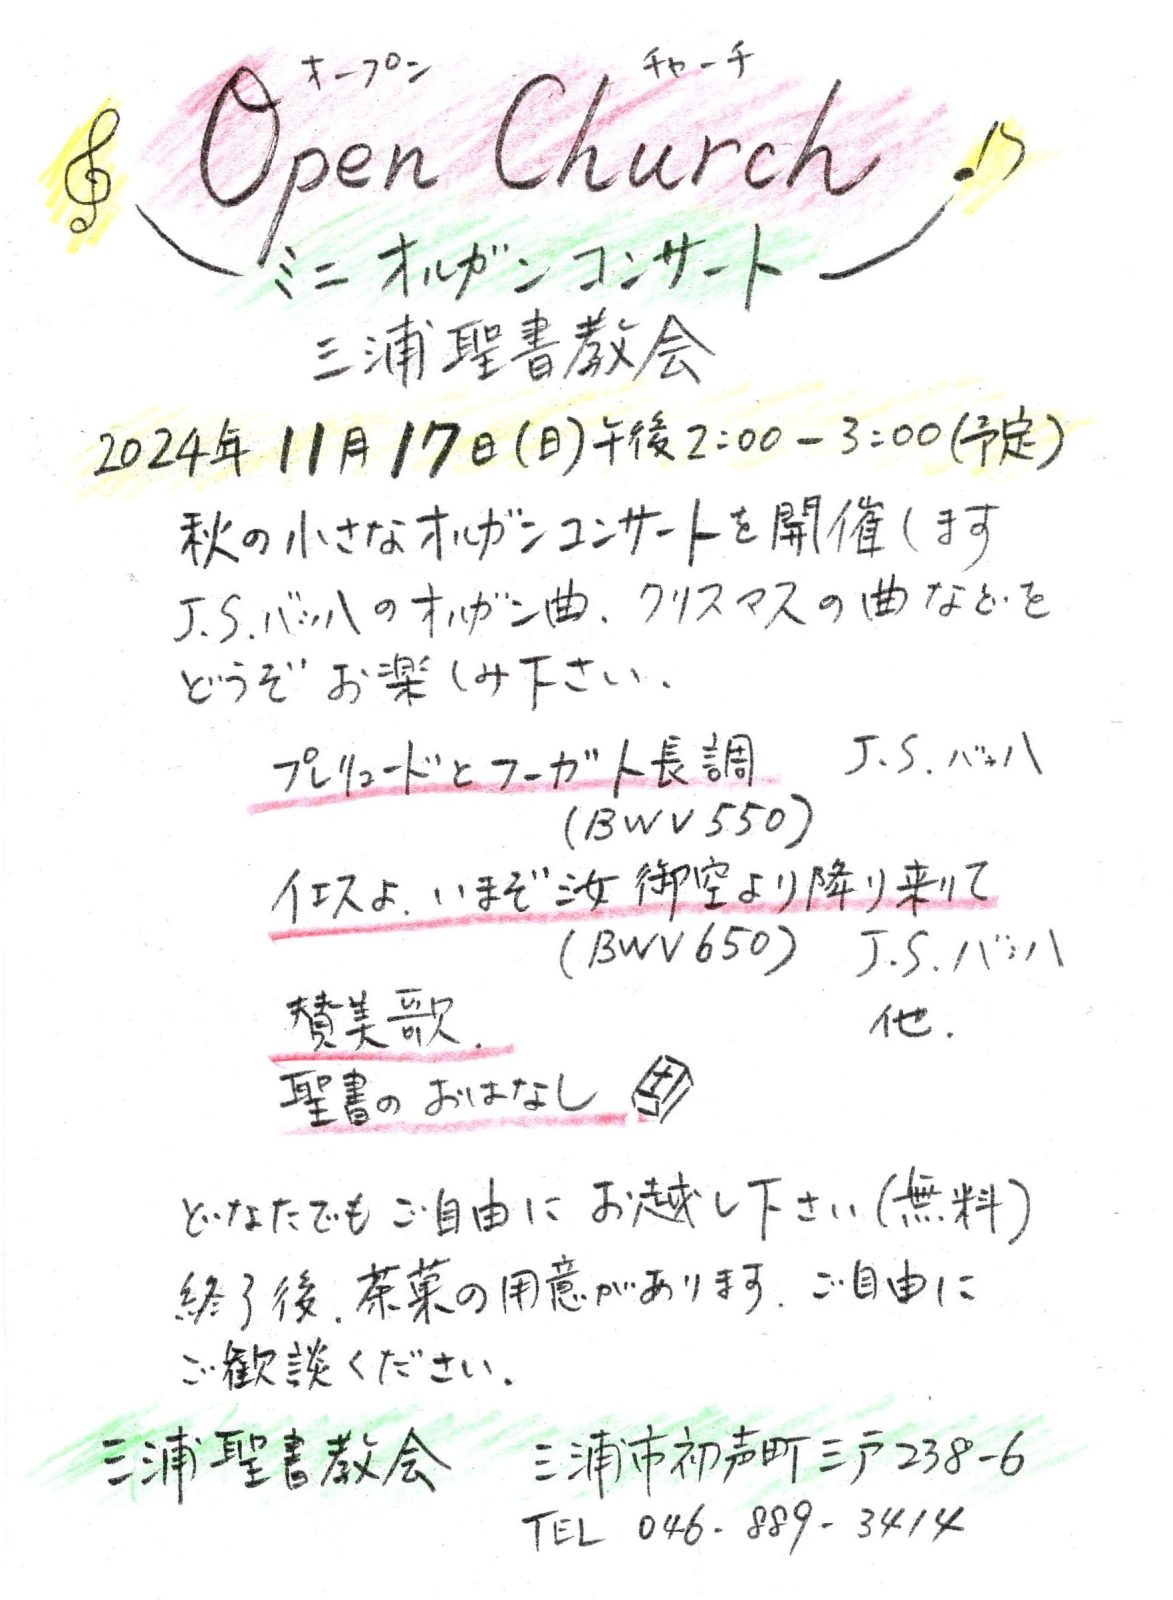 オープン チャーチ
Open Church
ミニ オルガン コンサート
三浦聖書教会
2024年 11月 17日(日)午後2:00-3:00(予定)
秋の小さなオルガンコンサートを開催します
J.S.バッハのオルガン曲、クリスマスの曲などを
どうぞお楽しみ下さい.
プレリュードとフーガト長調 J.S.バッハ
(BWV550)
イエスよ、いまぞ汝御空より降り来りて
(BWV650) J.S.バッハ
讃美歌. 他.
聖書のおはなし
どなたでもご自由にお越し下さい(無料)
終了後、茶菓の用意があります. ご自由に
ご歓談ください.
三浦聖書教会 三浦市初声町三戸238-6
TEL 046-889-3414